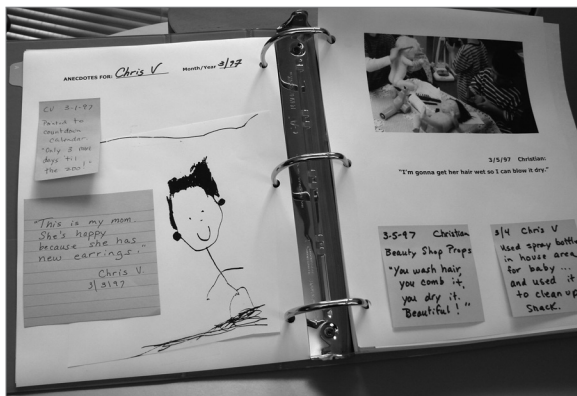 ANECDOTES FOR: Chris V Month/Year 3/97
CV 3-1-97
Pointed to
countdown
calendar.
"Only 3 more
days 'til
the zoo!"
"This is my mom.
She's happy
because she has
new earrings."
Chris V.
3/3/97
3/5/97 Christian:
"I'm gonna get her hair wet so I can blow it dry."
3-5-97 Christian
Beauty Shop Props
"You wash hair,
you comb it,
you dry it.
Beautiful!"
3/4 Chris V
Used spray bottle
in house area
for baby ...
and used it
to clean up
snack.